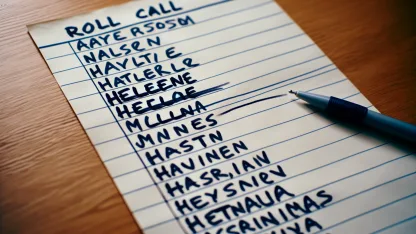 ROLL CALL
AAYERSOSM
NALSEN
HAYLTIE
HATLERLR
HELEENE
HECLOE
MCLLNA
MNNES
HASTN
HAVINEN
HASR,IAN
HEYSNRV
HETNAUA